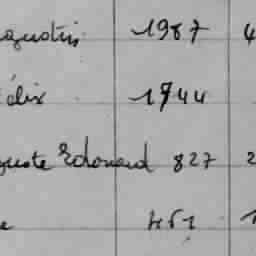 gustin 1987 4
élix 1744
guste Edouard 827 2
e 461 1